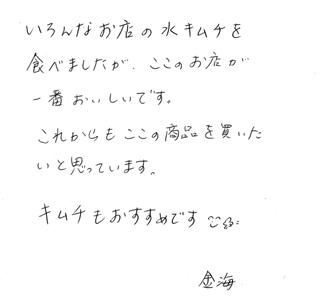 いろんなお店の水キムチを
食べましたが、ここのお店が
一番おいしいです。
これからもここの商品を買いた
いと思っています。
キムチもおすすめです
金海